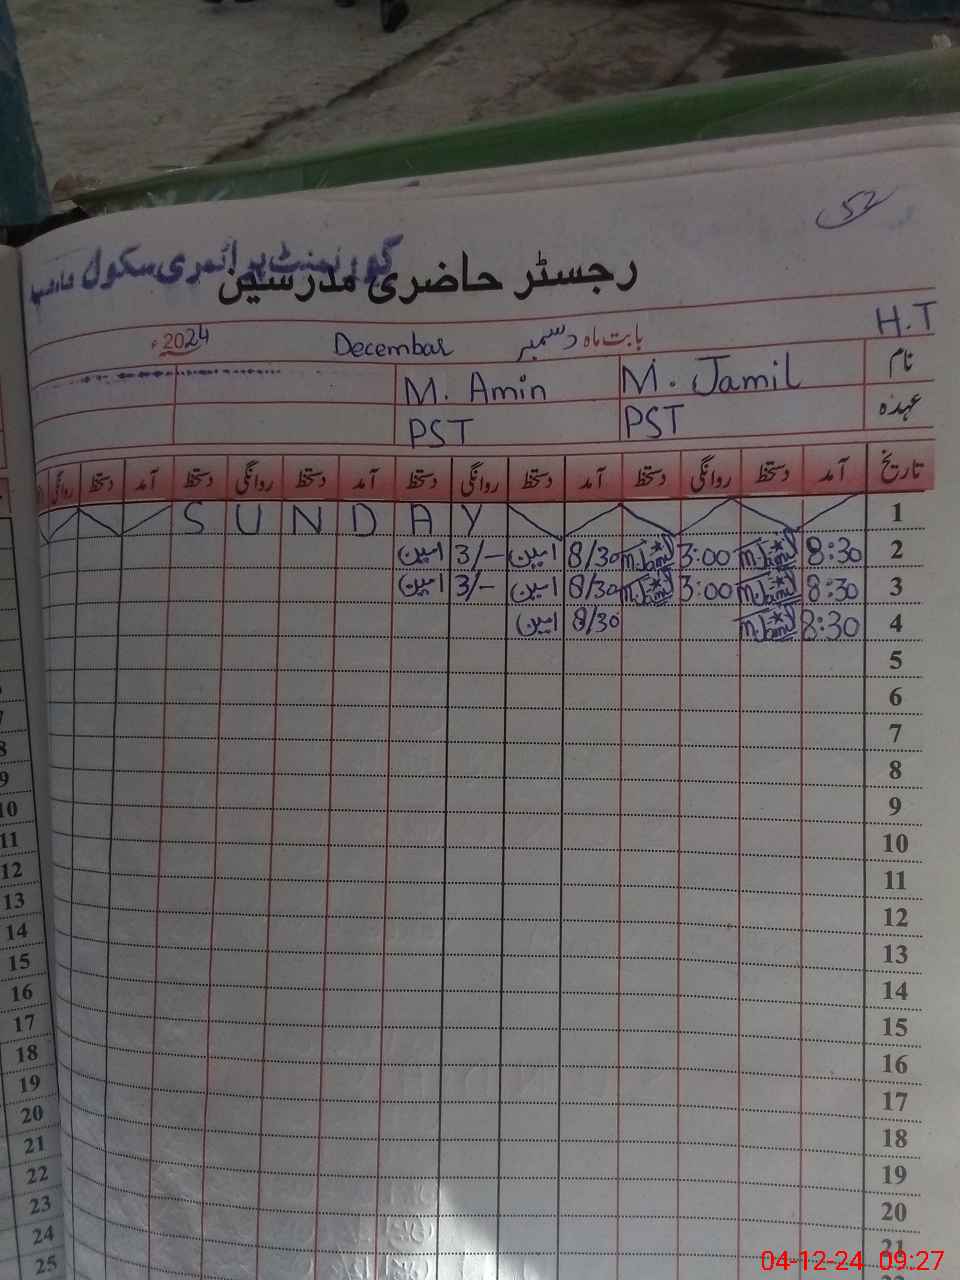 52
گورنمنٹ پرائمری سکول
رجسٹر حاضری مدرسین
H.T
بابت ماہ دسمبر Decembar 2024ء
نام M. Jamil M. Amin
عہدہ PST PST
تاریخ آمد دستخط روانگی دستخط آمد دستخط روانگی دستخط آمد دستخط روانگی دستخط آمد دستخط روانگی
1 S U N D A Y
2 8:30 M.Jamil 3:00 M.Jamil 8/30 امین 3/- امین
3 8:30 M.Jamil 3:00 M.Jamil 8/30 امین 3/- امین
4 8:30 M.Jamil 8/30 امین
5
6
7
8
9
10
11
12
13
14
15
16
17
18
19
20
21
8
9
10
11
12
13
14
15
16
17
18
19
20
21
22
23
24
25
04-12-24 09:27